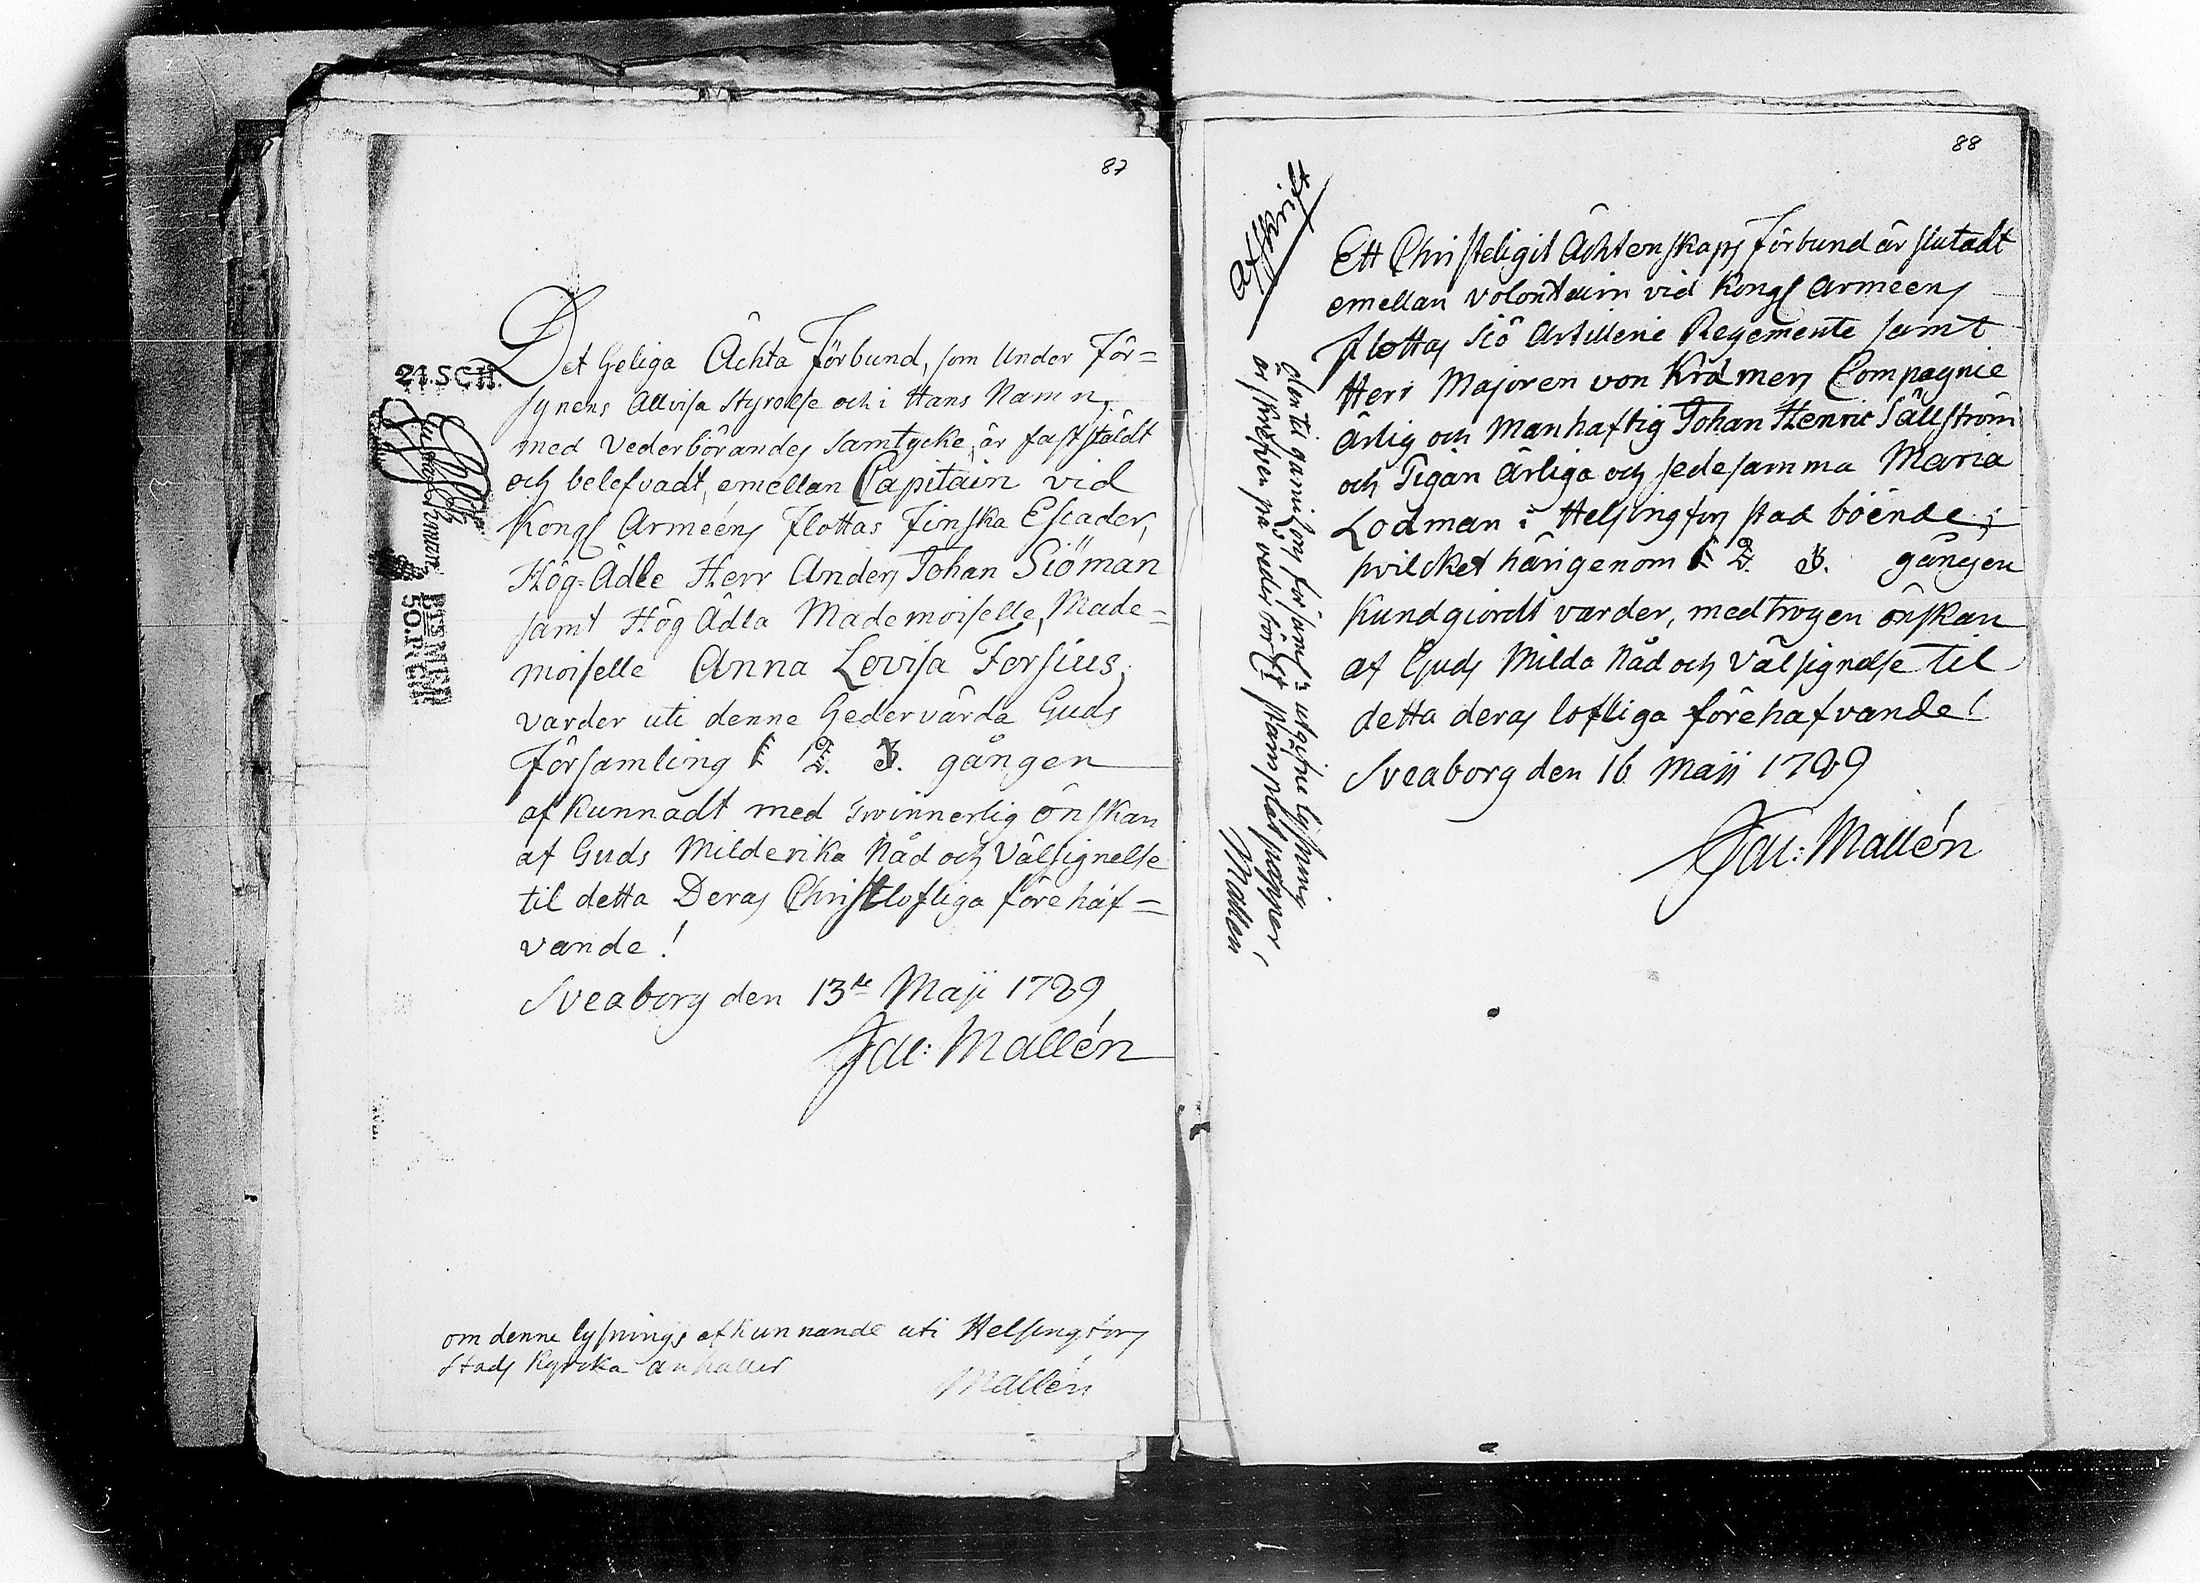 87
21.SCH.
Det heliga Ächta Förbund, som Under För=
synens Allvisa Styrelse och i Hans Namn,
med Vederbörandes Samtycke, är fastställdt
och belefvadt, emellan Capitain vid
Kongl Arméens Flottas Finska Escader,
Hög-Ädle Herr Anders Johan Siöman
samt Hög Ädla Mademoiselle, Made=
moiselle Anna Lovisa Forsius,
varder uti denne hedervärda Guds
Församling 1 2. 3. gången
afkunnadt med innerlig önskan
af Guds Milderika Nåd och Välsignelse
til detta Deras Christlofliga förehaf=
vande!
Sveaborg den 13de Maji 1789
Jac: Mallén
om denne lysnings afkunnande uti Helsingfors
Stads Kyrcka anhåller
Mallén
88
Afskrift
Ett Christeligit Ächtenskaps Förbund är slutadt
emellan Volontairn vid Kongl Arméens
Flottas Siö Artillerie Regemente samt
Herr Majoren von Krämers Compagnie
ärlig och Manhaftig Johan Henric Sällström
och Pigan Ärliga och sedesamma Maria
Lodman i Helsingfors stad boende;
hvilcket härigenom 1 2. 3. gången
Kundgiordt varder, med trogen önskan
af Guds Milda Nåd och Välsignelse til
detta deras lofliga förehafvande!
Sveaborg den 16 Maji 1789
Jac: Mallén
Den til garnisons församl:s utgifne lysning
är skrefven på vederbörligt stämplat papper,
Mallén